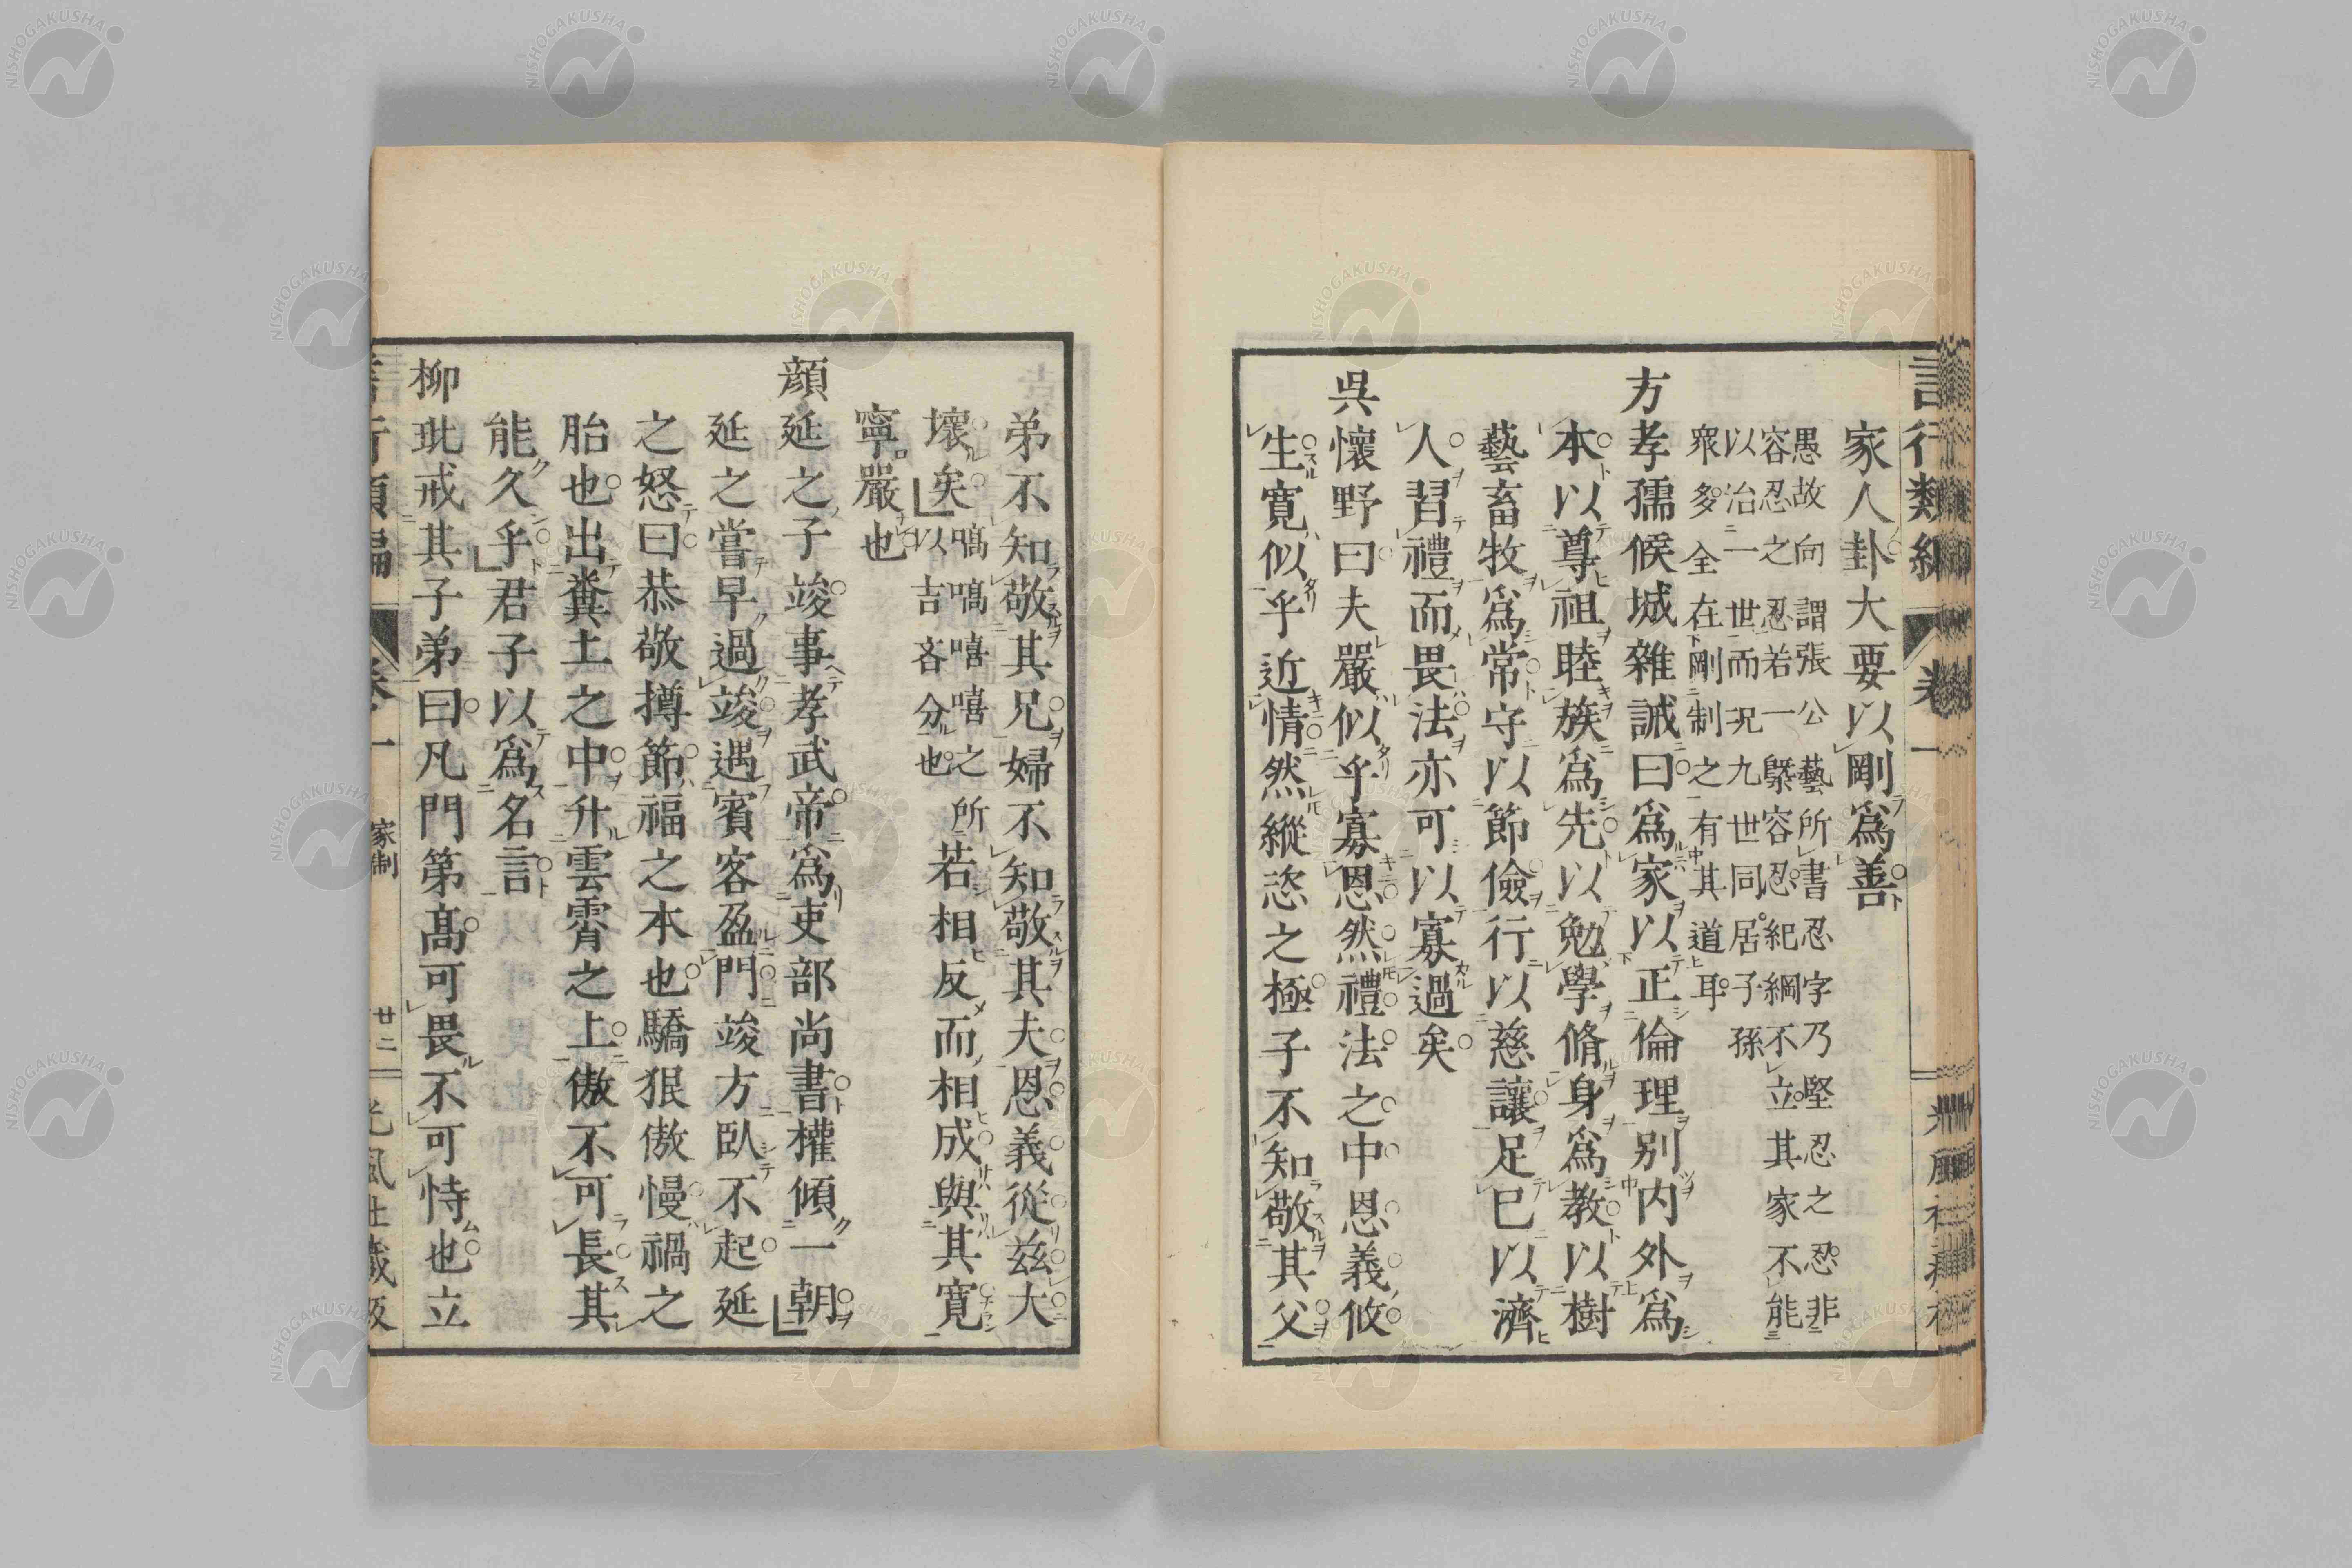 言行類編 卷一
家人卦大要以剛爲善
愚故向謂張公藝所書忍字乃堅忍之忍非
容忍之忍若一槩容忍紀綱不立其家不能
以治一世而況九世同居子孫
衆多全在剛制之有其道耳
方孝孺候城雜誡曰爲家以正倫理別内外爲
本以尊祖睦族爲先以勉學脩身爲教以樹
藝畜牧爲常守以節儉行以慈讓足已以濟
人習禮而畏法亦可以寡過矣
吳懷野曰夫嚴似乎寡恩然禮法之中恩義攸
生寛似乎近情然縱恣之極子不知敬其父
弟不知敬其兄婦不知敬其夫恩義從玆大
壞矣
嗃嗃嘻嘻之所
以吉吝分也
若相反而相成與其寛
寧嚴也
顔延之子竣事孝武帝爲吏部尚書權傾一朝
延之嘗早過竣遇賓客盈門竣方臥不起延
之怒曰恭敬撙節福之本也驕狠傲慢禍之
胎也出糞土之中升雲霄之上傲不可長其
能久乎君子以爲名言
柳玭戒其子弟曰凡門第高可畏不可恃也立
言行類編 卷一 家制 廿二 光風社藏版